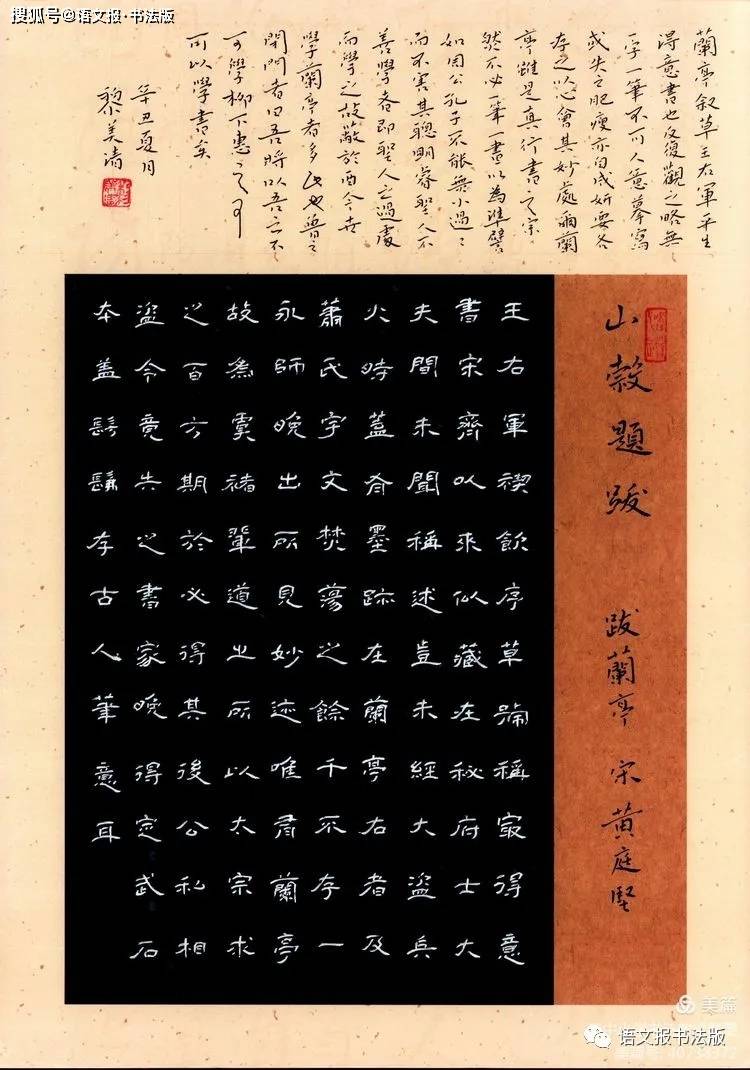 搜狐号@语文报·书法版
蘭亭叙草王右軍平生
得意書也反復觀之略無
一字一筆不可人意摹寫
或失之肥瘦亦自成妍要各
存之以心會其妙處爾蘭
亭雖是真行書之宗
然不必一筆一畫以為準譬
如周公孔子不能無小過過
而不害其聰明睿聖人不
善學者即聖人之過處
而學之故蔽於今世
學蘭亭者多此也魯之
閉門者曰吾將以吾之不
可學柳下惠之可
可以學書矣
辛丑夏月
黎美清
山穀題跋 跋蘭亭 宋黄庭堅
王右軍禊飲序草號稱最得意
書宋齊以來似藏在秘府士大
夫間未聞稱述豈未經大盜兵
火時蓋有墨跡在蘭亭右者及
蕭氏宇文焚蕩之餘千不存一
永師晚出所見妙迹唯有蘭亭
故為虞褚輩道之所以太宗求
之百方期於必得其後公私相
盜今竟失之書家晚得定武石
本蓋髣髴存古人筆意耳
美篇
语文报书法版